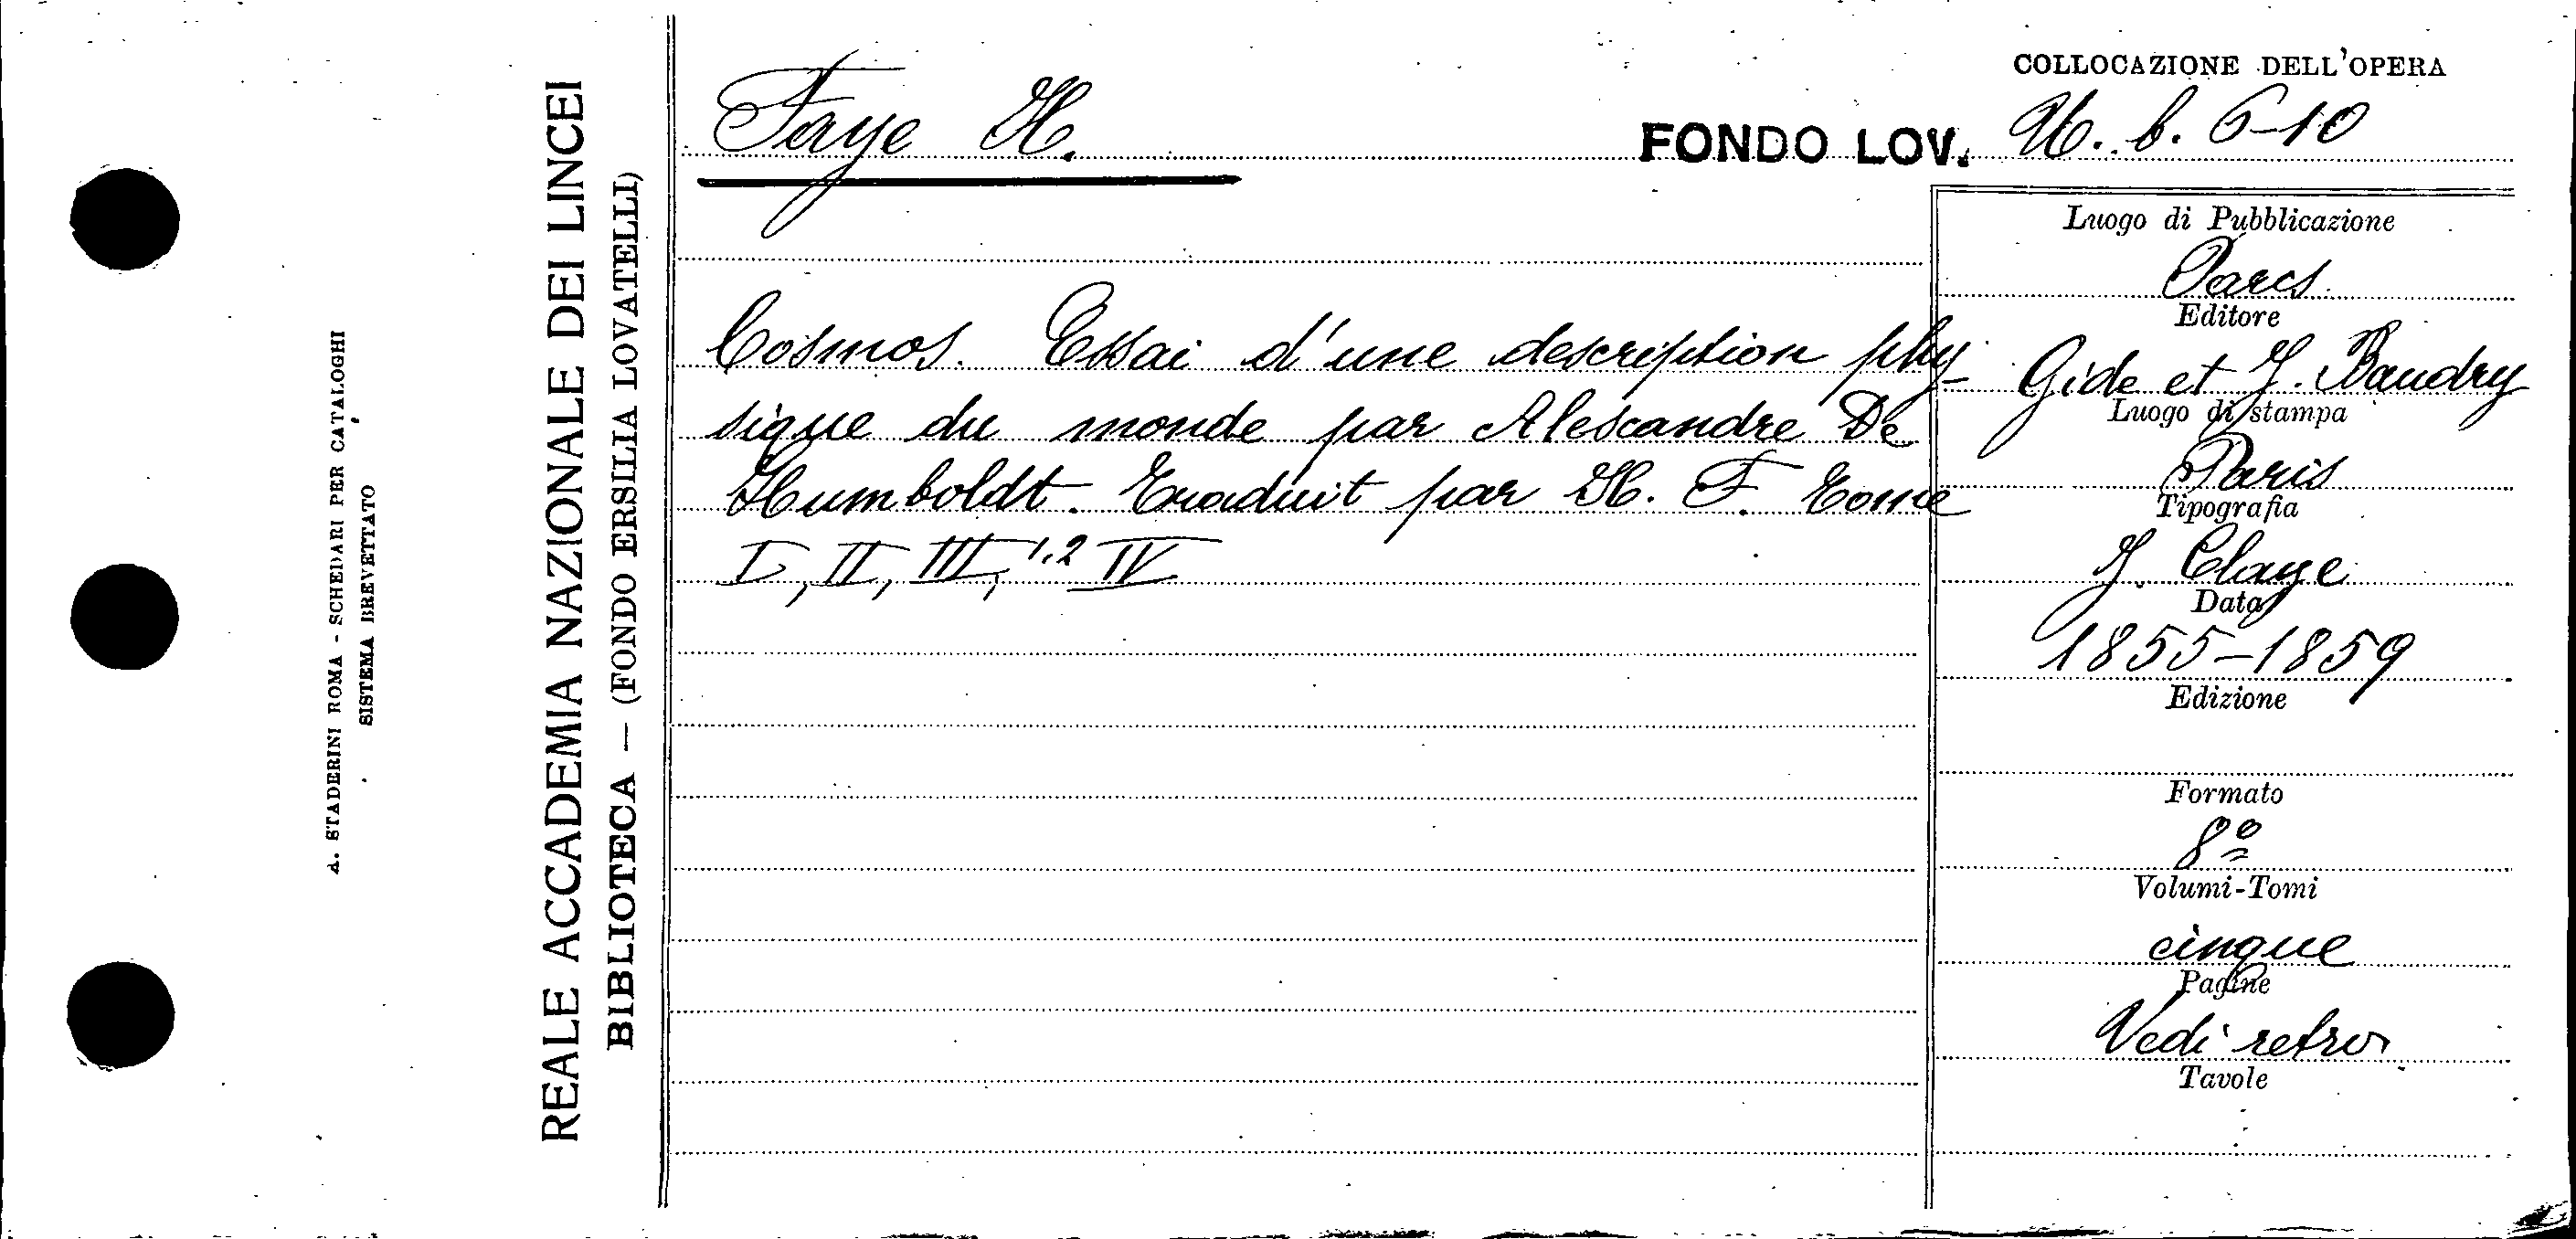 COLLOCAZIONE DELL'OPERA
Faye H.
FONDO LOV. 96. b. 6-10
Cosmos. Essai d'une description phy-
sique du monde par Alexandre De
Humboldt. Traduit par H. F. Tome
I, II, III, 1,2 IV
Luogo di Pubblicazione
Paris
Editore
Gide et J. Baudry
Luogo di stampa
Paris
Tipografia
J. Claye
Data
1855-1859
Edizione
Formato
8º
Volumi-Tomi
cinque
Pagine
Vedi retro
Tavole
REALE ACCADEMIA NAZIONALE DEI LINCEI
BIBLIOTECA — (FONDO ERSILIA LOVATELLI)
A. STADERINI ROMA - SCHEDARI PER CATALOGHI
SISTEMA BREVETTATO